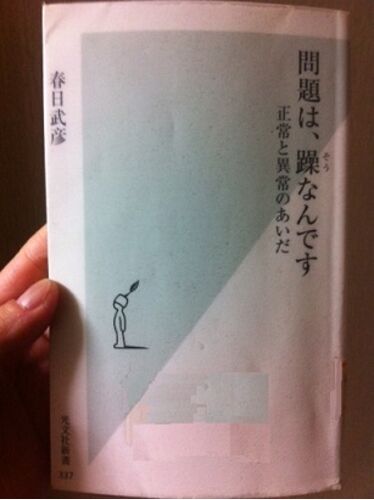 問題は、躁なんです
そう
正常と異常のあいだ
春日武彦
光文社新書
337